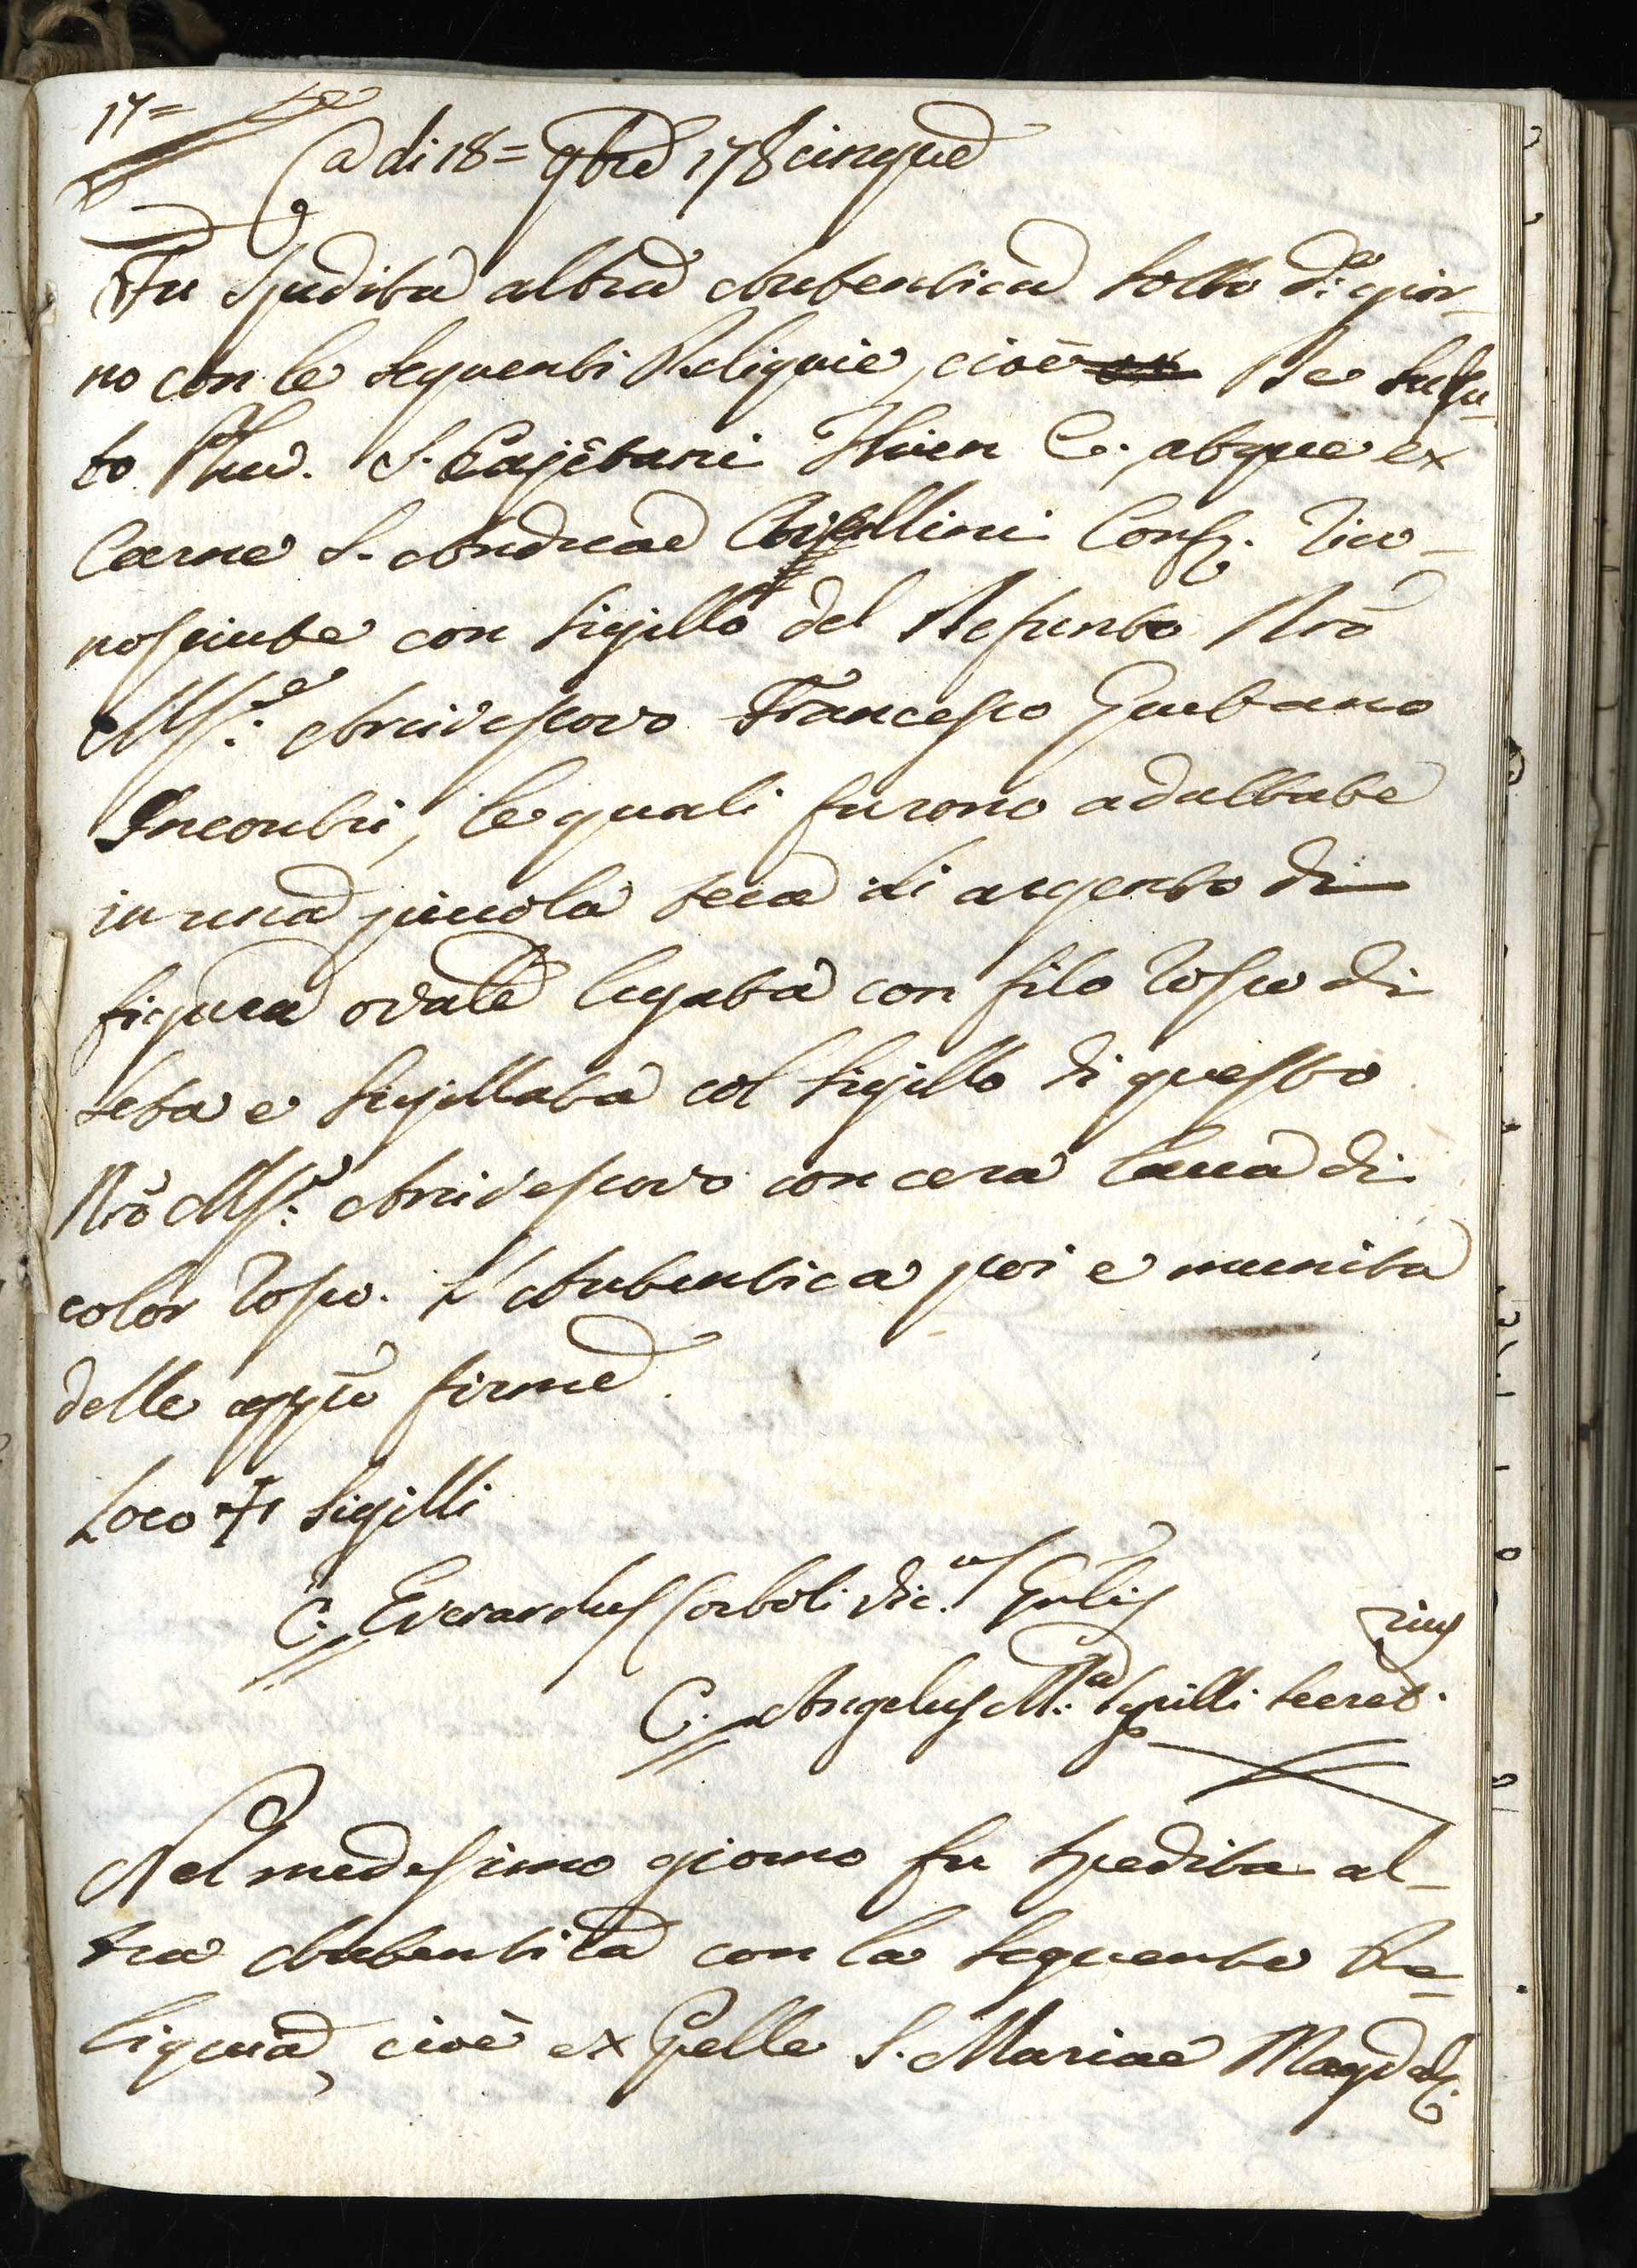 17=
a di 18= 9bre 178cinque
Fu spedita altra Autentica sotto dº gior-
no con le seguenti Reliquie, cioè De sudu-
to S. Cajetani Thien C. atque ex
Carne S. Andreae Avellini Conf. rico-
nosciute con sigillo del Defunto Nrõ
Msr.e Arcivescovo Francesco Gaetano
Incontri, le quali furono adattate
in una piccola teca di argento di
figura ovale legata con filo rosso di
seta e sigillata col sigillo di questo
Nrõ Msr.e Arcivescovo con cera lacca di
color rosso. L'Autentica poi e munita
delle appiè firme.
Loco + Sigilli
C. Everardus Corboli Vic.us Gnlis
C. Angelus M.a Secret.rius
Nel medesimo giorno fu spedita al-
tra Autentica con la seguente Re-
liquia, cioè ex Pelle S. Mariae Magdal.